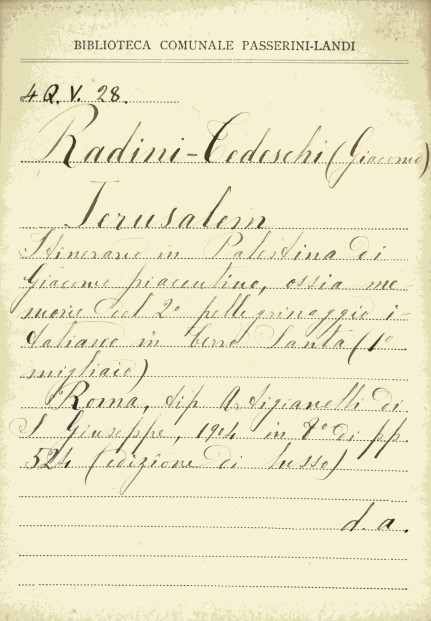 BIBLIOTECA COMUNALE PASSERINI-LANDI
4 Q. V. 28.
Radini-Tedeschi (Giacomo)
Jerusalem
Itinerario in Palestina di
Giacomo piacentino, ossia me-
morie del 2° pellegrinaggio i-
taliano in terra Santa (1°
migliaio)
Roma, tip Artigianelli di
S Giuseppe, 1904 in 8° di pp.
524 (edizione di lusso)
d. a.